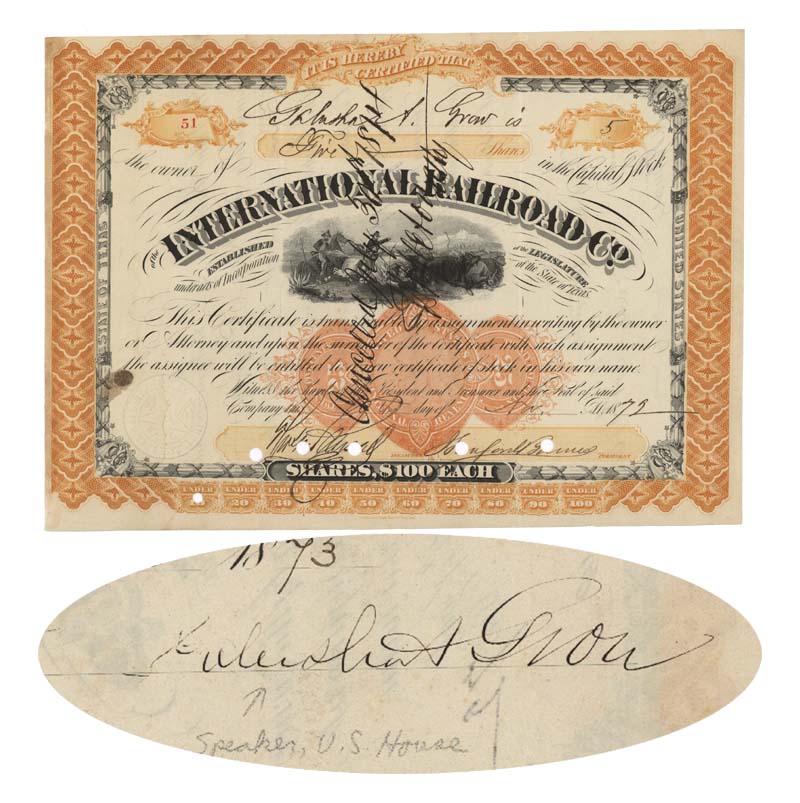 IT IS HEREBY
CERTIFIED THAT
51
Galusha A. Grow is
5
Five Shares
the owner of in the Capital Stock
of the INTERNATIONAL RAILROAD Co.
ESTABLISHED of the LEGISLATURE
under acts of Incorporation of the State of Texas.
STATE OF TEXAS
UNITED STATES
This Certificate is transferable by assignment in writing by the owner
or Attorney and upon the surrender of the certificate with such assignment
the assignee will be entitled to a new certificate of stock in his own name.
Witness our hands President and Treasurer and the Seal of said
Company this day of Nov. A.D. 1872
Cancelled July
TREASURER PRESIDENT
SHARES, $100 EACH
UNDER UNDER UNDER UNDER UNDER UNDER UNDER UNDER UNDER UNDER
10 20 30 40 50 60 70 80 90 100
1873
Galusha A Grow
Speaker, U.S. House